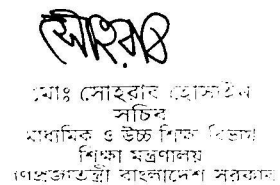 সৌহরাব
মোঃ সোহরাব হোসাইন
সচিব
মাধ্যমিক ও উচ্চ শিক্ষা বিভাগ
শিক্ষা মন্ত্রণালয়
গণপ্রজাতন্ত্রী বাংলাদেশ সরকার